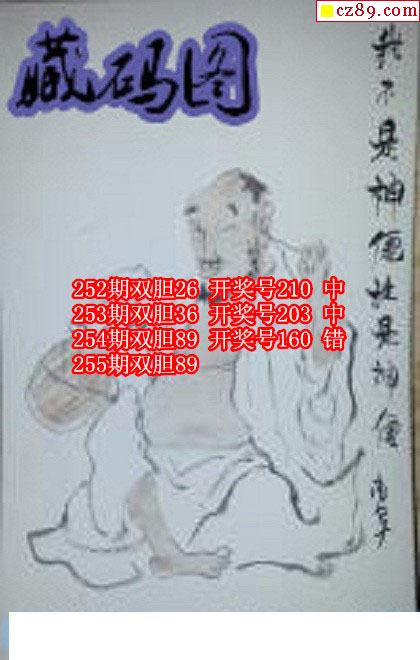 cz89.com
藏码图
我不是神僊谁是神僊
252期双胆26 开奖号210 中
253期双胆36 开奖号203 中
254期双胆89 开奖号160 错
255期双胆89